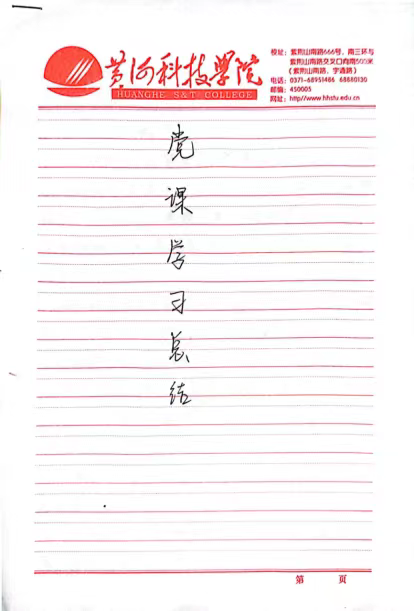 黄河科技学院
HUANGHE S&T COLLEGE
校址：紫荆山南路666号，南三环与
紫荆山南路交叉口向南505米
（紫荆山南路、字通路）
电话：0371-68951486 68880130
邮编：450005
网址：http//www.hhstu.edu.cn
党
课
学
习
总
结
第 页